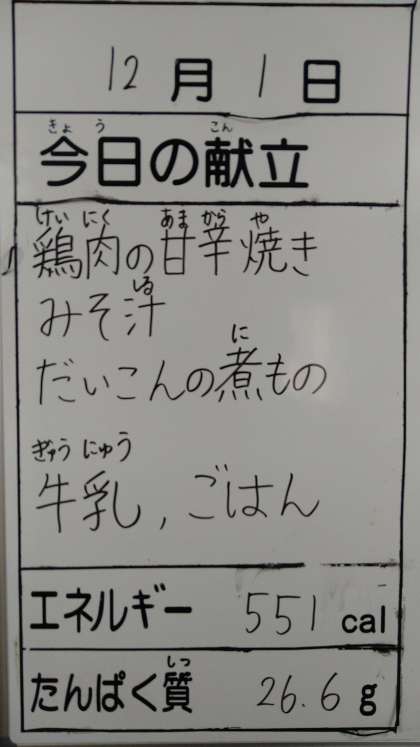 12月1日
きょう こん
今日の献立
けい にく あま から や
鶏肉の甘辛焼き
しる
みそ汁
に
だいこんの煮もの
ぎゅう にゅう
牛乳,ごはん
エネルギー 551 cal
しつ
たんぱく質 26.6 g